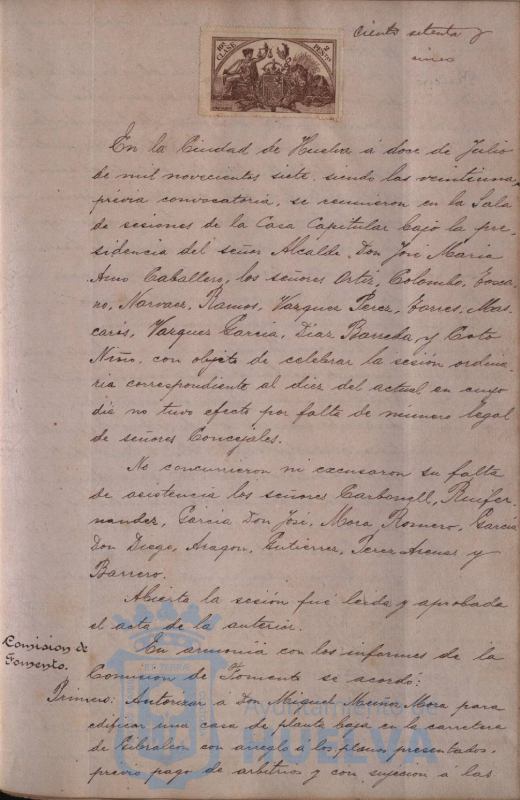 Ciento setenta y
cinco
10ª CLASE
2 PESETAS
En la Ciudad de Huelva á doce de Julio
de mil novecientos siete, siendo las veintiuna,
prévia convocatoria, se reunieron en la Sala
de sesiones de la Casa Capitular bajo la pre-
sidencia del señor Alcalde, Don José Maria
Amo Caballero, los señores Ortiz, Colombo, Tosca-
no, Narvaez, Ramos, Vazquez Perez, Torres, Mas-
carós, Vazquez Garcia, Diaz Barreda y Coto
Niño, con objeto de celebrar la sesión ordina-
ria correspondiente al diez del actual en cuyo
dia no tuvo efecto por falta de número legal
de señores Concejales.
No concurrieron ni excusaron su falta
de asistencia los señores Carbonell, Ruifer-
nandez, Garcia Don José, Mora Romero, Garcia
Don Diego, Aragon, Gutierrez, Perez y
Barrero.
Abierta la sesión fué leida y aprobada
el acta de la anterior.
Comision de
Fomento.
En armonia con los informes de la
Comision de Fomento se acordó:
Primero: Autorizar á Don Miguel Muñoz Mora para
edificar una casa de planta baja en la carretera
de Gibraleon con arreglo á los planos presentados,
prévio pago de arbitrios y con sujecion a las
Ayuntamiento de
HUELVA